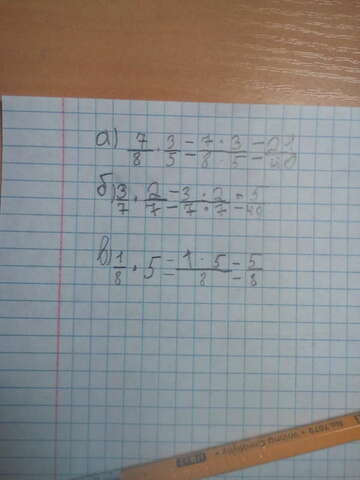 а) 7/8 · 3/5 = 7 · 3/8 · 5 = 21/40
б) 3/7 · 2/7 = 3 · 2/7 · 7 =
в) 1/8 · 5 = 1 · 5/8 = 5/8